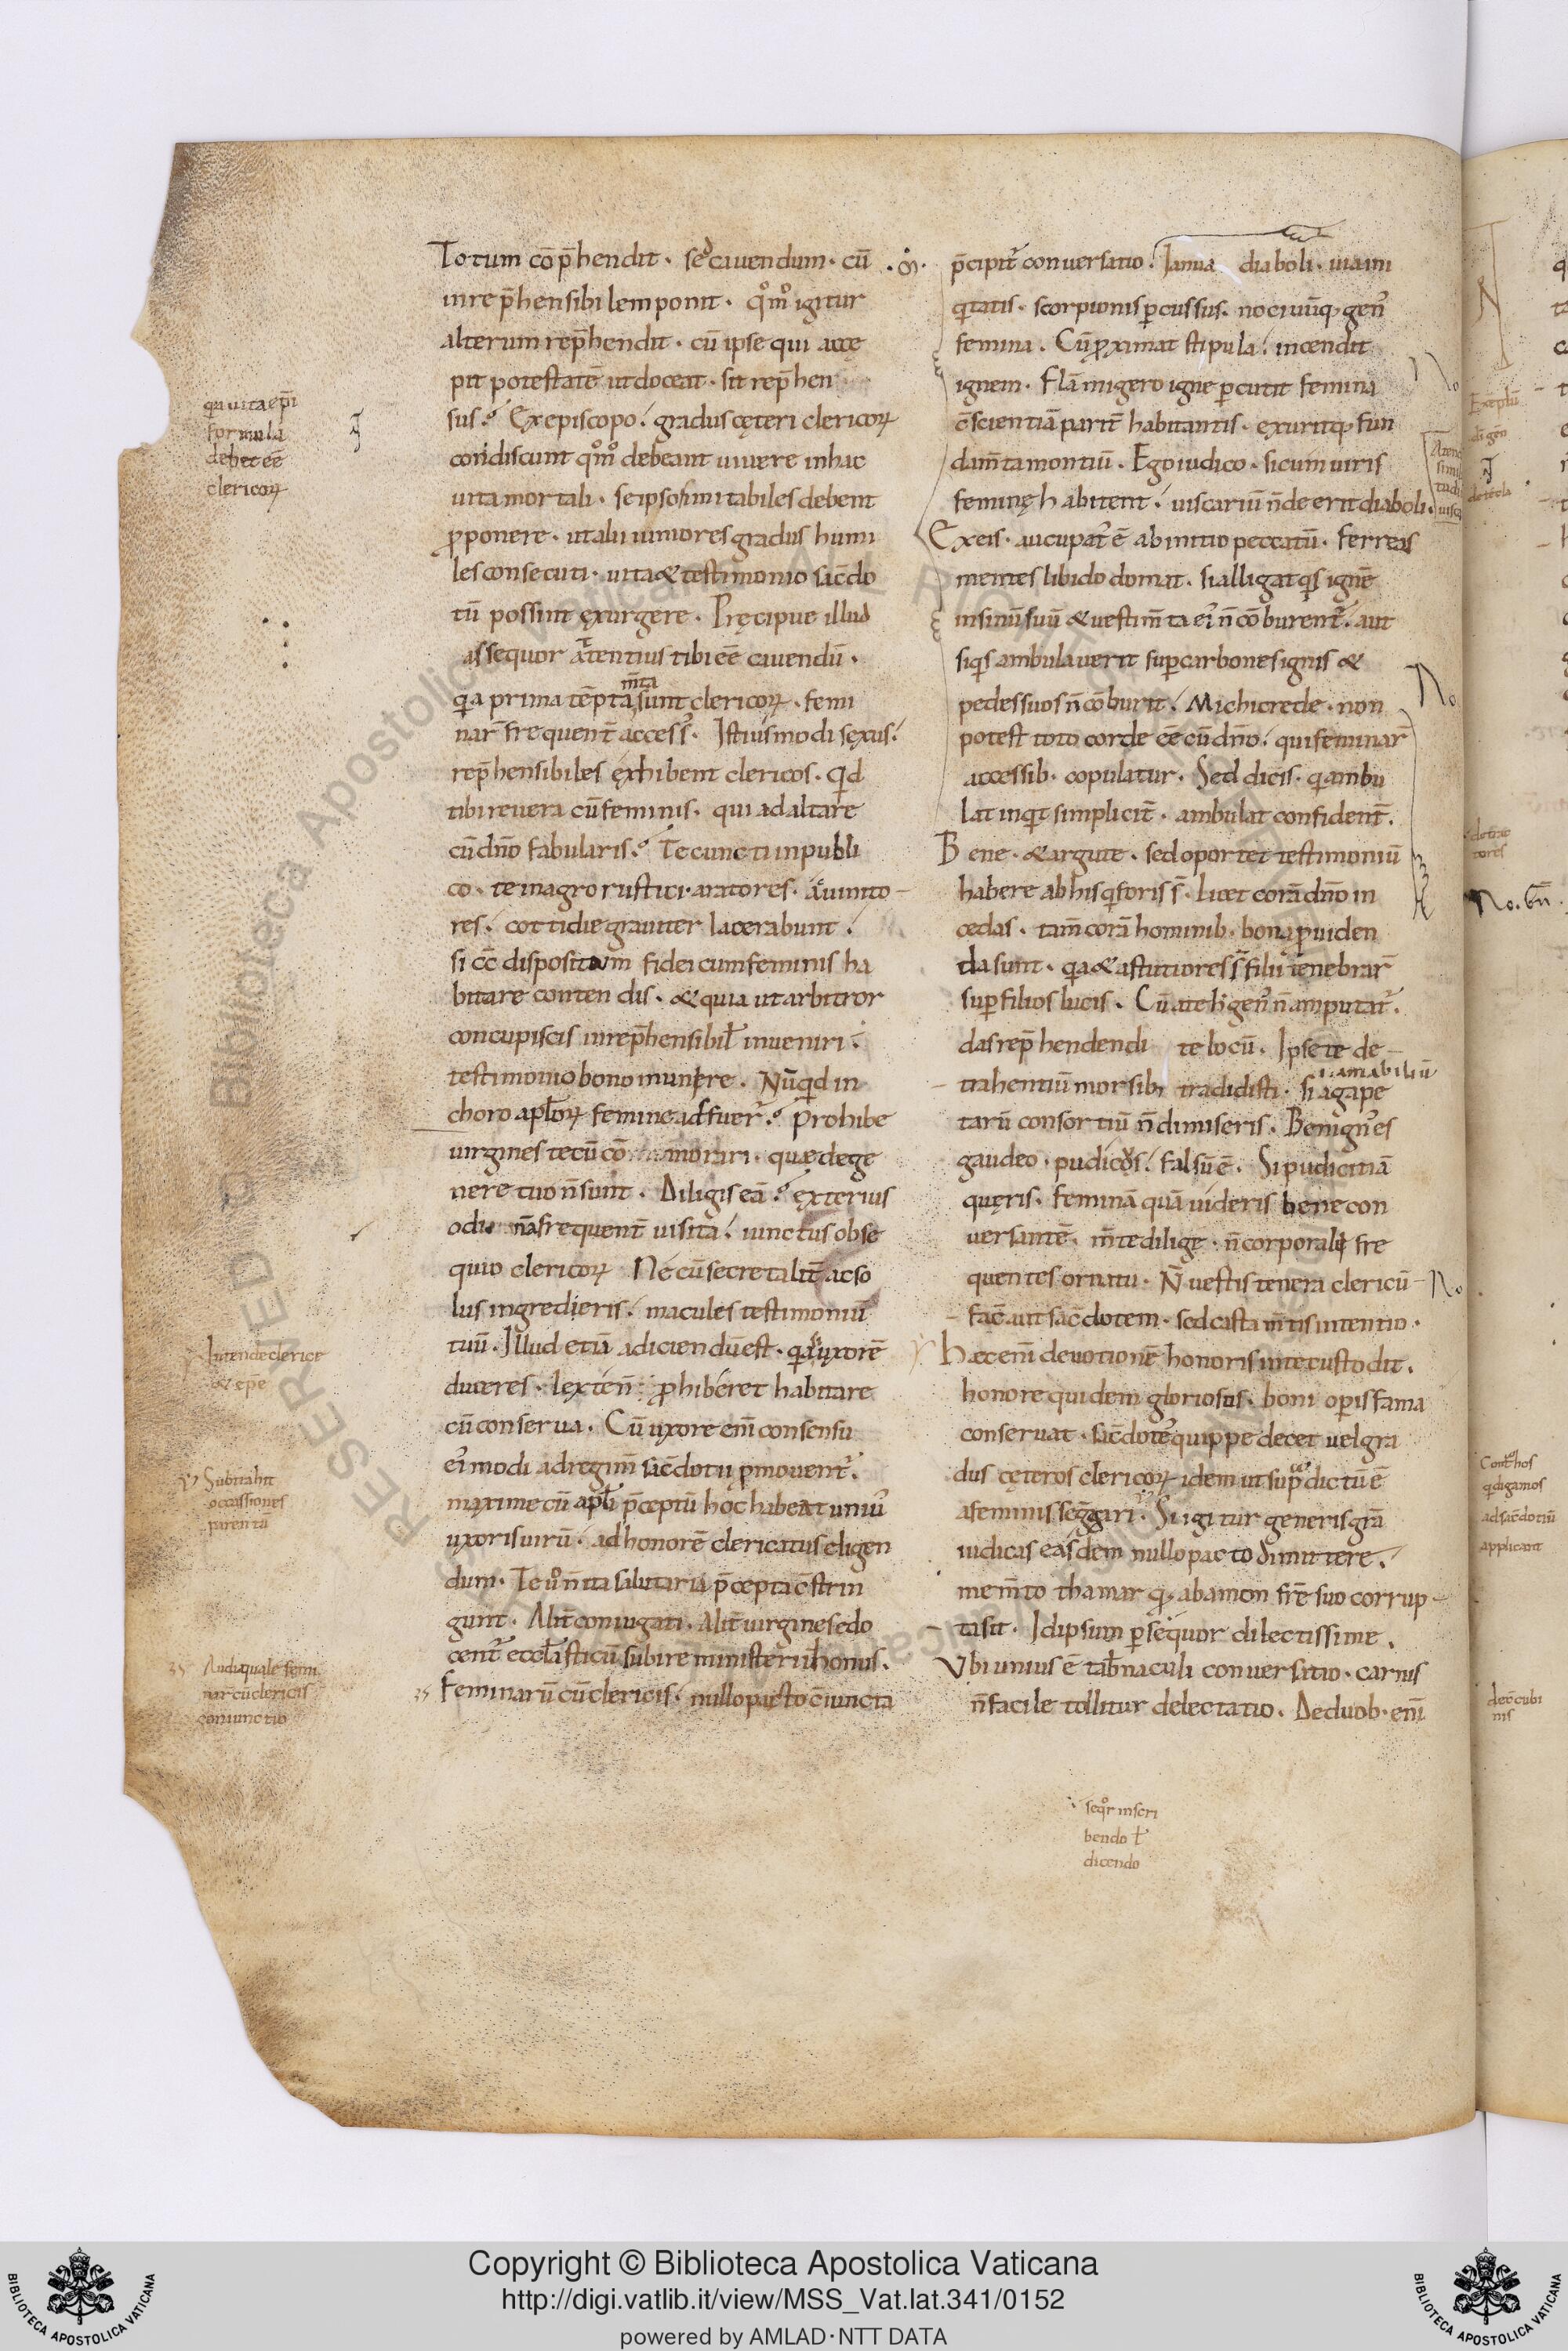 Totum cōp̄hendit · sed cauendum · cū
inrep̄hensibilem ponit · qͦmͦ igitur
alterum rep̄hendit · cū ipse qui acce
pit potestatē ut doceat · sit rep̄hen
sus? Ex episcopo gradus cęteri clericoꝝ
condiscunt qͦmͦ debeant uiuere in hac
uita mortali · se ipsos imitabiles debent
ꝓponere · ut alii iuniores gradus humi
les consecuti · uita & testimonio sac̄do
tū possint exurgere · Pręcipue illud
assequor attentius tibi eē cauendū ·
qa prima tēptam̄ta sunt clericoꝝ · femi
nar̄ frequent̄ access᷒ · Istius modi sexus
rep̄hensibiles exhibent clericos · Qid
tibi reuera cū feminis · qui ad altare
cū dn̄o fabularis? Te cuncti in publi
co · te in agro rustici · aratores · ac uinito
res cottidie grauiter lacerabunt
si cc̄ dispositum fidei cum feminis ha
bitare conten dis · & quia ut arbitror
concupiscis inrep̄hensibil̄ inueniri
testimonio bono munere · Nūqid in
choro apl̄oꝝ femine adfuer᷒? Prohibe
uirgines tecū cō morari · quæ de ge
nere tuo n̄ sunt · Diligis eā? exterius
odi n̄ a frequent̄ uisita iunctus obse
quio clericoꝝ Ne cū secreta lit̄ ac so
lus ingredieris macules testimoniū
tuū · Illud etiā adiciendū est · qa si uxorē
duceres · lex te n̄ ꝓhiberet habitare
cū conserua · Cū uxore em̄ consensu
ei᷒modi ad regim̄ sac̄dotii ꝓmouent᷒
maxime cū apl̄i p̄ceptū hoc habeat uniu᷒
uxoris uirū · ad honorē clericatus eligen
dum · Te uͦ n̄ ita salutaria p̄cepta c̄strin
gunt · Alit̄ coniugati · Alit̄ uirgines edo
cent᷒ eccl̄asticū subire ministerii honus ·
Feminarū cū clericis nullo pacto c̄iuncta
p̄cipit᷒ conuersatio · Ianua diaboli · uia ini
qitatis · scorpionis ꝑcussus · nociuūq; gen᷒
femina · Cū ꝓximat stipula incendit
ignem · Flāmigero igne ꝑcutit femina
c̄scientiā parit̄ habitantis · exuritq; fun
dam̄ta montiū · Ego iudico · si cum uiris
feminę habitent uiscariū n̄ deerit diaboli ·
Ex eis · aucupat᷒ ē ab initio peccatū · ferreas
mentes libido domat · si alligat qis ignē
in sinū suū & uestim̄ta ei᷒ n̄ cōburent᷒ aut
si qis ambulauerit suꝑ carbones ignis &
pedes suos n̄ cōburit Michi crede · non
potest toto corde eē cū dn̄o qui feminar̄
accessib; copulatur · Sed dicis · qi ambu
lat inqit simplicit̄ · ambulat confident̄ ·
Bene · & argute · sed oportet testimoniū
habere ab his qi foris s̄ · licet corā dn̄o in
cedas · tam̄ corā hominib; bona ꝓuiden
da sunt · qa & astutiores s̄ filii tenebrar̄
suꝑ filios lucis · Cū a te h gen᷒ n̄ amputat᷒
das rep̄hendendi te locū · Ipse te de
i. amabiliū
trahentiū morsib; tradidisti · si agape
tarū consortiū n̄ dimiseris · Benign᷒ es
gaudeo · pudicus falsū ē · Si pudicitiā
quęris · feminā quā uideris bene con
uersantē · m̄te dilige · n̄ corporali fre
quentes ornatu · N̄ uestis tenera clericū
fac̄ aut sac̄dotem · sed casta m̄tis intentio ·
Hæc em̄ deuotionē honoris in te custodit ·
honore quidem gloriosus · boni oꝑis fama
conseruat · sac̄dote᷒ quippe decet uel gra
dus cęteros clericoꝝ idem ut supra dictū ē
a feminis seg̅gari · Si igitur generis gr̄a
iudicas easdem nullo pacto dimittere
mem̄to thamar q; ab amon fr̄e suo corrup
ta sit · Id ipsum ꝑsequor dilectissime ·
Vbi unius ē tab̄naculi conuersatio · carnis
n̄ facile tollitur delectatio · De duob; em̄
qa uita ep̄i
formula
debet eē
clericoꝝ
Intende clerice
& ep̄e
Subtrahit
occassiones
parentū
Audi quale femi
nar̄ cū clericis
coniunctio
seqͦr inscri
bendo ł
dicendo
No
No.
No
detrac
tores
Cont᷒ hos
qi digamos
ad sac̄dotiū
applicant
de c̄cubi
nis
Copyright © Biblioteca Apostolica Vaticana
http://digi.vatlib.it/view/MSS_Vat.lat.341/0152
powered by AMLAD·NTT DATA
BIBLIOTECA APOSTOLICA VATICANA
BIBLIOTECA APOSTOLICA VATICANA